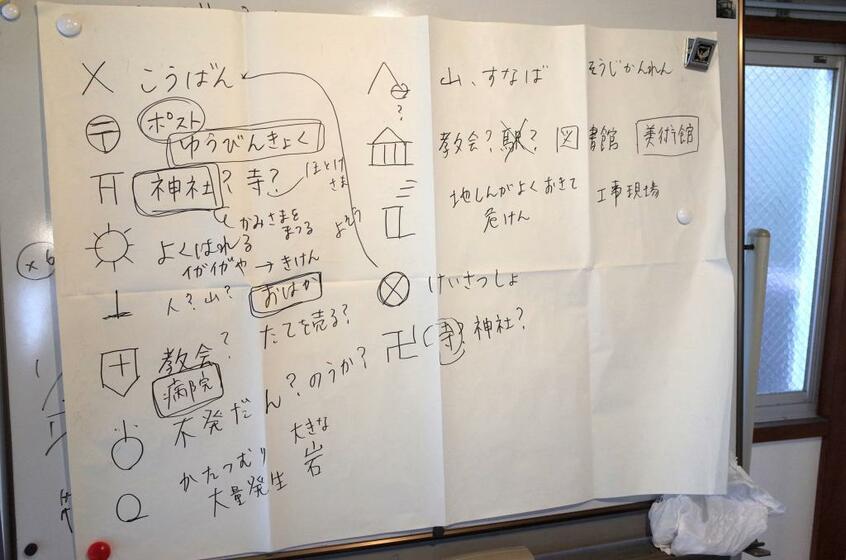 こうばん
ポスト
ゆうびんきょく
神社? 寺?
ほとけさま
かみさまを
まつる
よくはれる
イガイガや → きけん
人?山? おはか
教会? たてを売る?
病院
不発だん?のうか?
かたつむり 大きな
大量発生 岩
山、すなば そうじかんれん
?
教会?駅? 図書館 美術館
地しんがよくおきて 工事現場
危けん
けいさつしょ
卍 寺?神社?